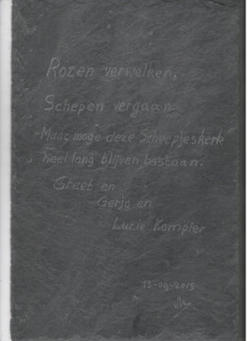 Rozen verwelken,
Schepen vergaan.
Maar moge deze Scheepjeskerk
heel lang blijven bestaan.
Greet en
Gerja en
Lucie Kompier
13-09-2015